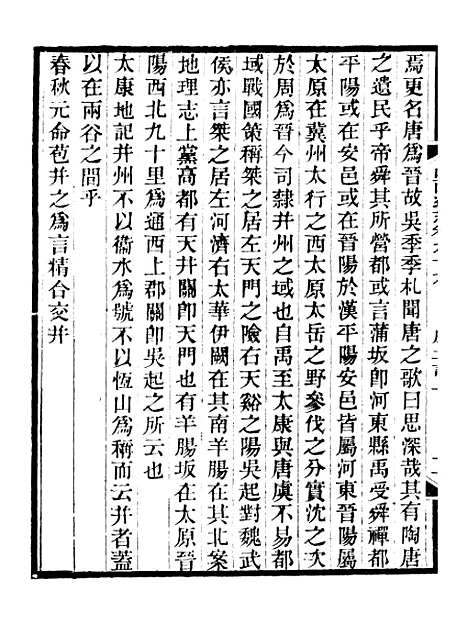 焉更名唐爲晉故吳季札聞唐之歌曰思深哉其有陶唐
之遺民乎帝舜其所營都或言蒲坂卽河東縣禹受舜禪都
平陽或在安邑或在晉陽於漢平陽安邑皆屬河東晉陽屬
太原在冀州太行之西太原太岳之野參伐之分實沈之次
於周爲晉今司隸并州之域也自禹至太康與唐虞不易都
域戰國策稱桀之居左天門之險右天谿之陽吳起對魏武
侯亦言桀之居左河濟右太華伊闕在其南羊腸在其北案
地理志上黨高都有天井關卽天門也有羊腸坂在太原晉
陽西北九十里爲通西上郡關卽吳起之所云也
太康地記并州不以衞水爲號不以恆山爲稱而云并者蓋
以在兩谷之間乎
春秋元命苞并之爲言精合交并